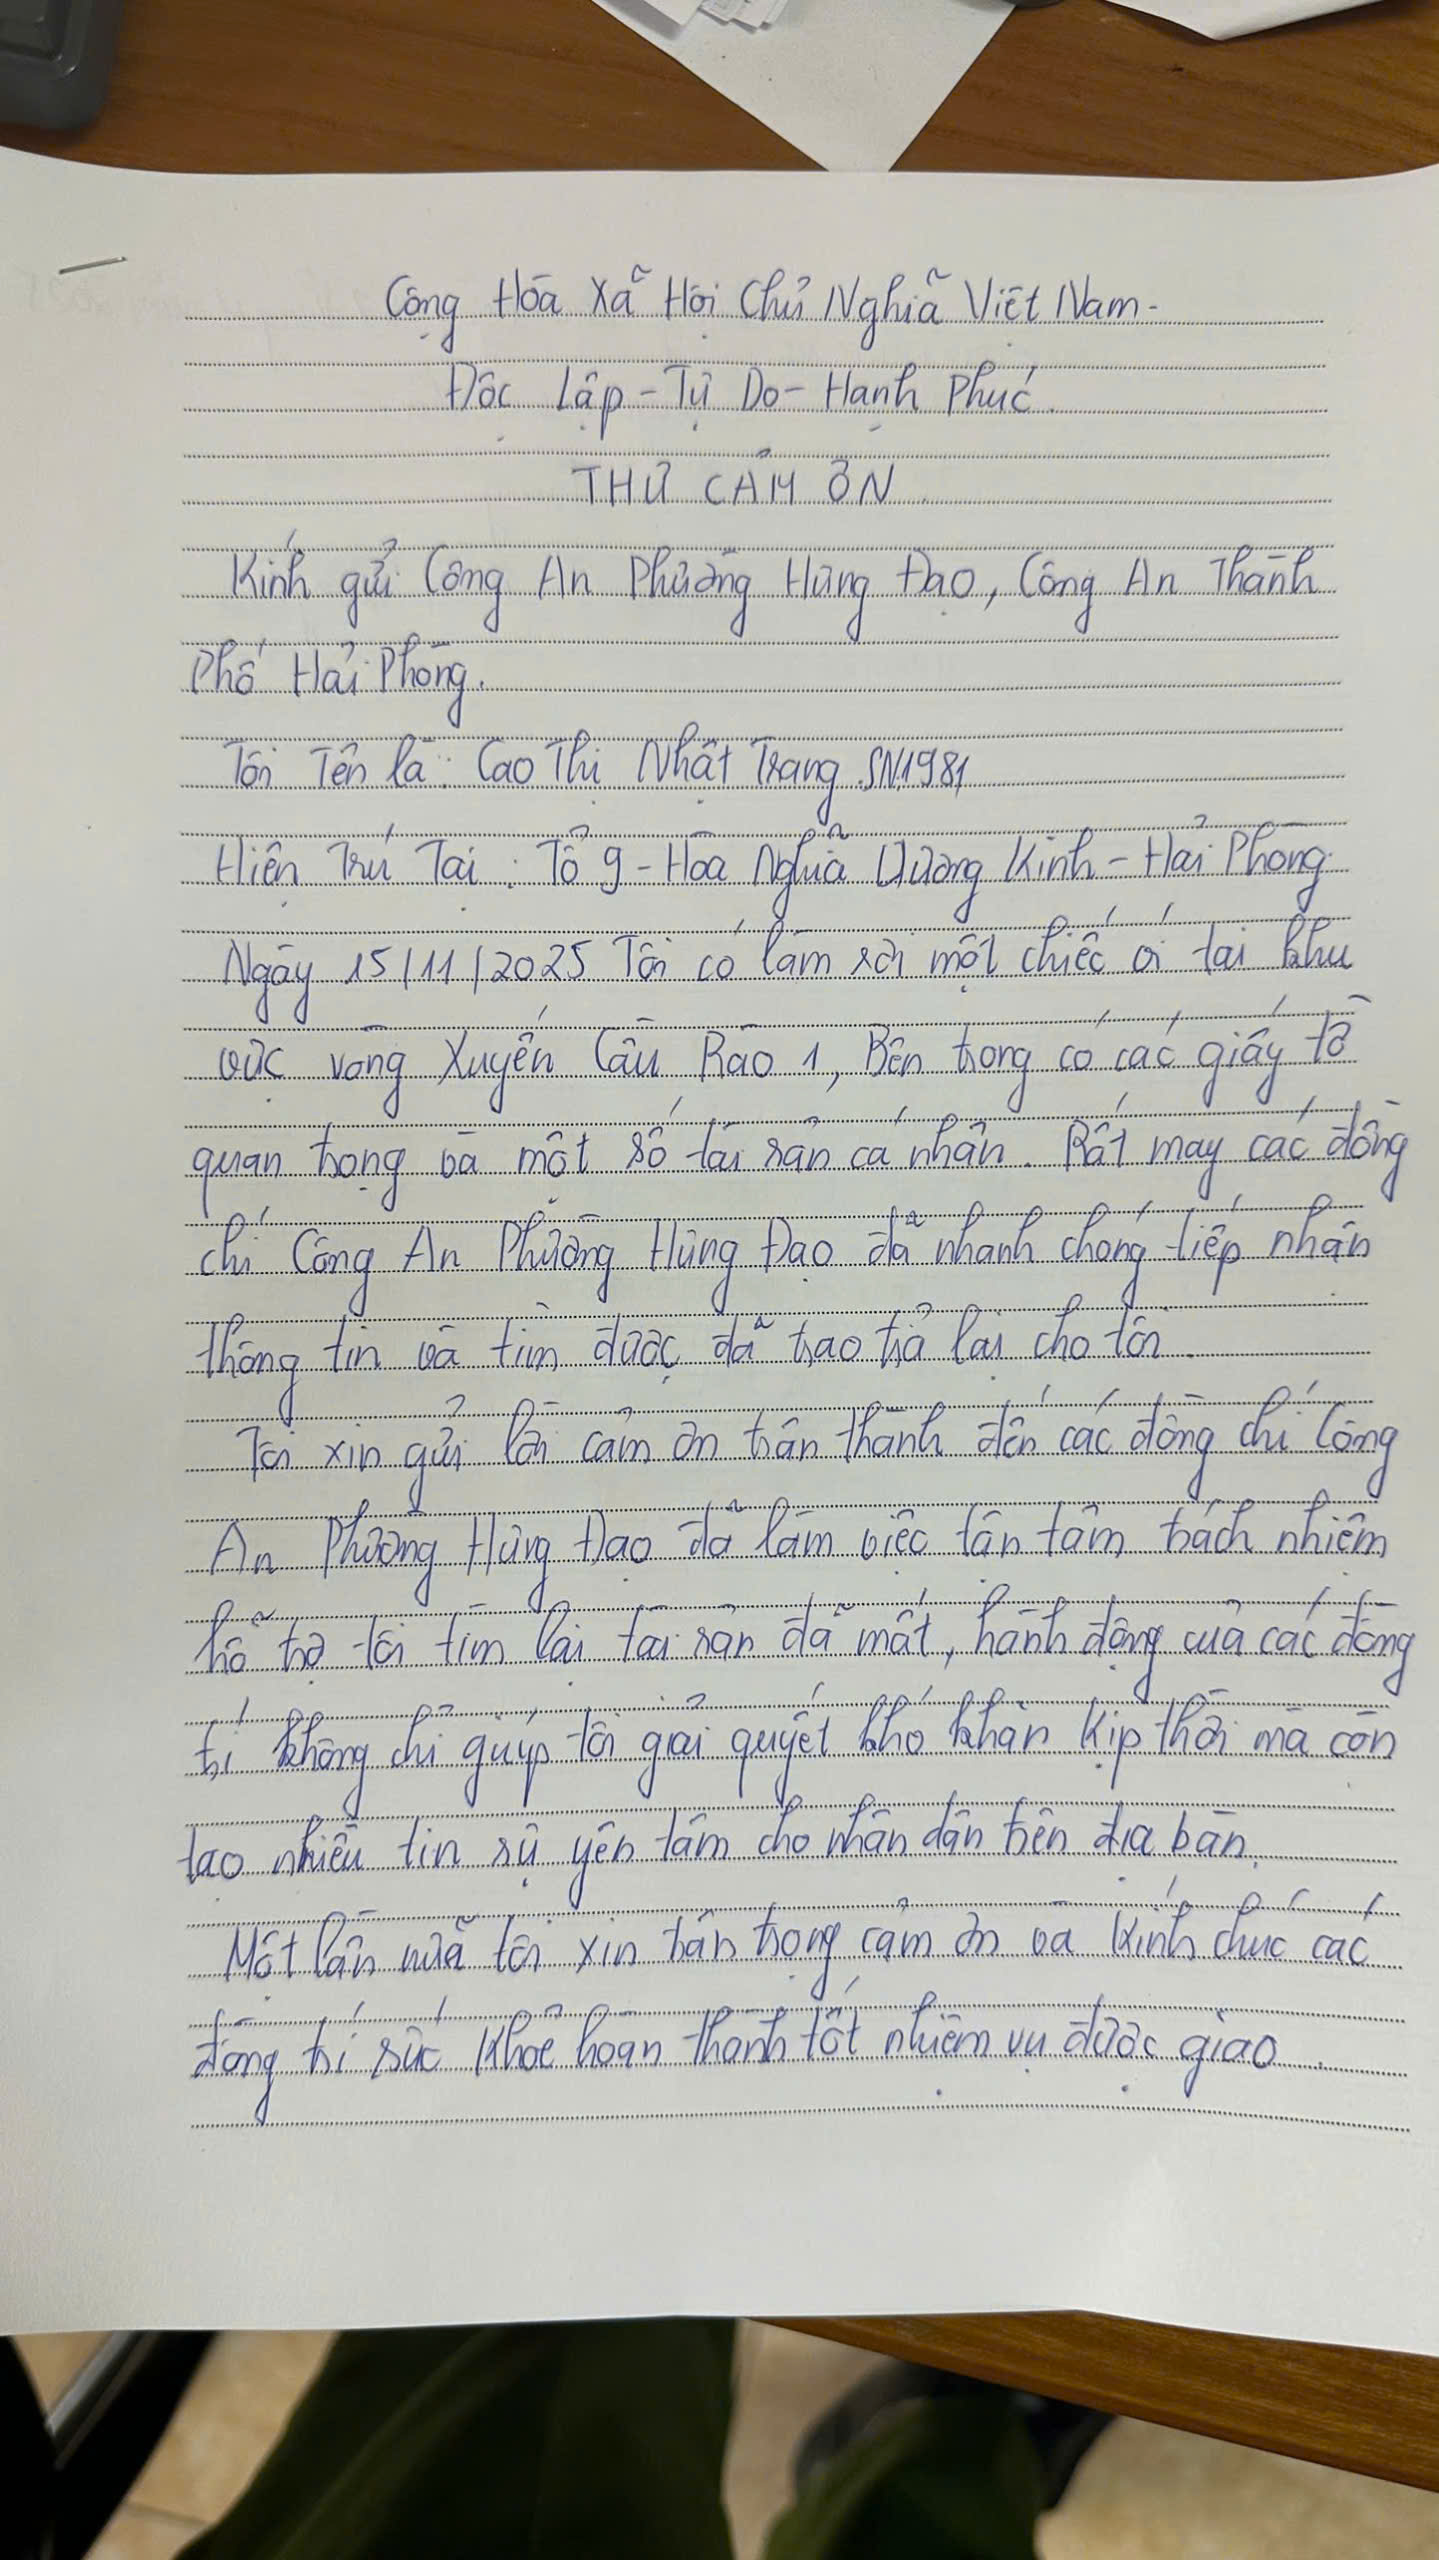 Cộng Hòa Xã Hội Chủ Nghĩa Việt Nam-
Độc Lập - Tự Do - Hạnh Phúc.
THƯ CẢM ƠN
Kính gửi: Công An Phường Hưng Đạo, Công An Thành
Phố Hải Phòng.
Tôi Tên là: Cao Thị Nhật Trang SN1981
Hiện Trú Tại: Tổ 9 - Hòa Nghĩa Dương Kinh - Hải Phòng
Ngày 15/11/2025 Tôi có làm rơi một chiếc ví tại khu
vực vòng Xuyến Cầu Rào 1, Bên trong có các giấy tờ
quan trọng và một số tài sản cá nhân. Rất may các đồng
chí Công An Phường Hưng Đạo đã nhanh chóng tiếp nhận
thông tin và tìm được đã trao trả lại cho tôi.
Tôi xin gửi lời cảm ơn trân thành đến các đồng chí Công
An Phường Hưng Đạo đã làm việc tận tâm trách nhiệm
hỗ trợ tôi tìm lại tài sản đã mất, hành động của các đồng
trí không chỉ giúp tôi giải quyết khó khăn kịp thời mà còn
tạo nhiều tin sự yên tâm cho nhân dân trên địa bàn.
Một lần nữa tôi xin trân trọng cảm ơn và kính chúc các
đồng trí sức khỏe hoàn thành tốt nhiệm vụ được giao.